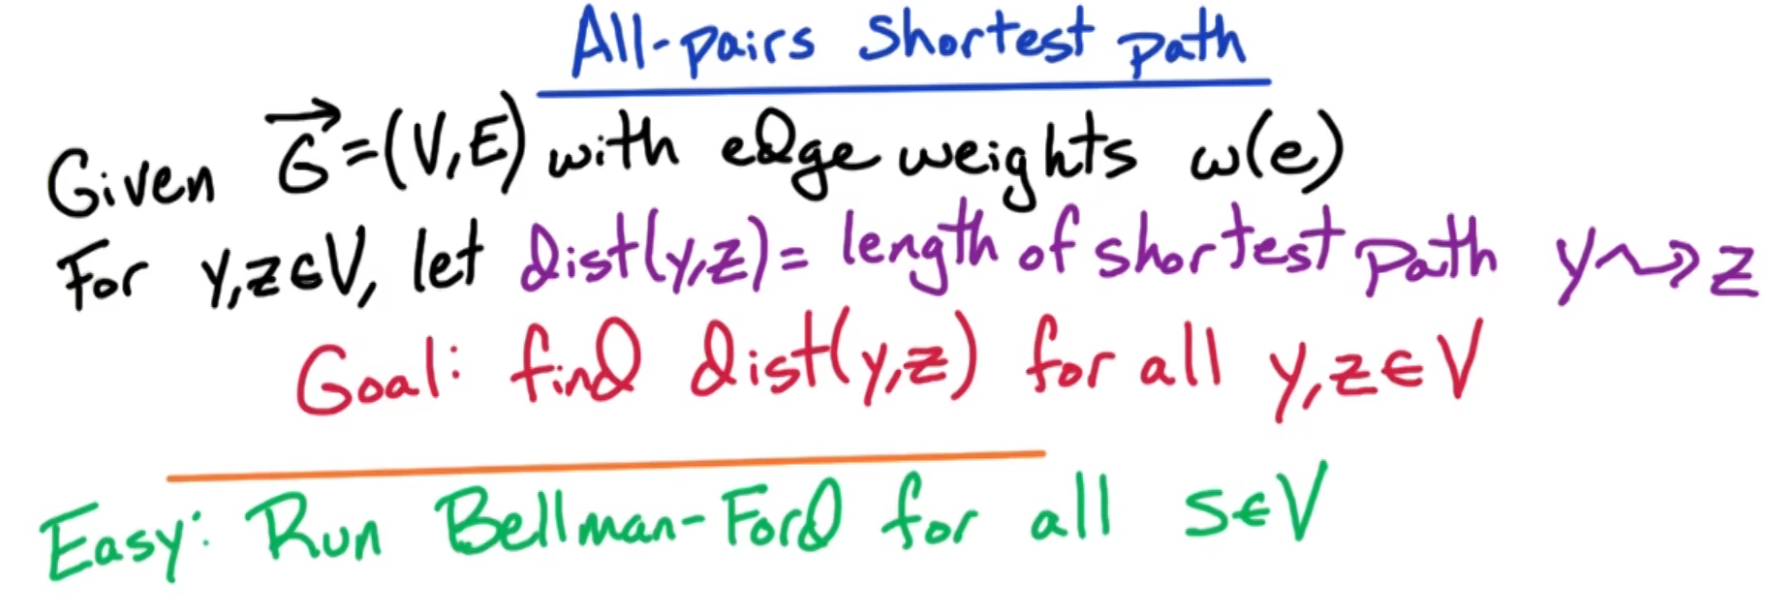 All-pairs shortest path
Given G⃗=(V,E) with edge weights w(e)
For y,z∈V, let dist(y,z)= length of shortest path y⇝z
Goal: find dist(y,z) for all y,z∈V
Easy: Run Bellman-Ford for all s∈V